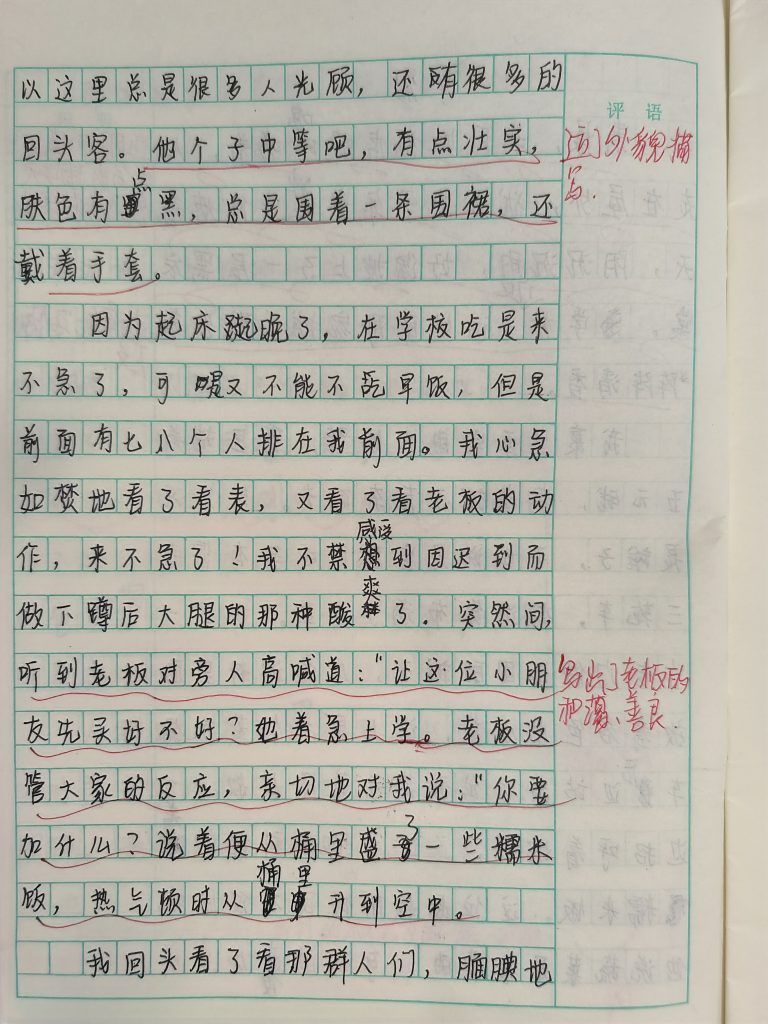 以这里总是很多人光顾，还有很多的
评语
回头客。他个子中等吧，有点壮实，
外貌描写.
点
肤色有黑，总是围着一条围裙，还
戴着手套。
因为起床晚了，在学校吃是来
不急了，可又不能不吃早饭，但是
前面有七八个人排在我前面。我心急
如焚地看了看表，又看了看老板的动
感受
作，来不急了！我不禁到因迟到而
爽
做下蹲后大腿的那种酸了.突然间，
听到老板对旁人高喊道："让这位小朋
写出了老板的
和蔼、善良.
友先买好不好？她着急上学。老板没
管大家的反应，亲切地对我说："你要
了
加什么？说着便从桶里盛一些糯米
桶里
饭，热气顿时从升到空中。
我回头看了看那群人们，腼腆地